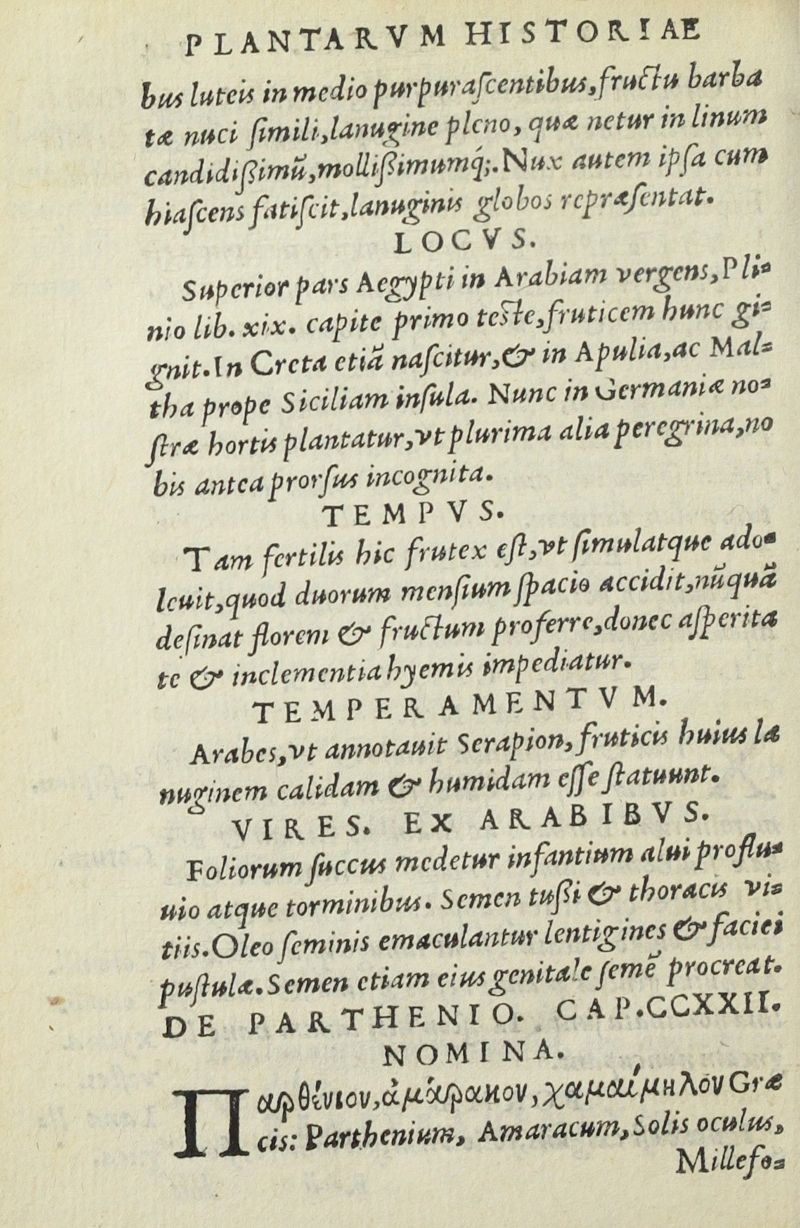 PLANTARVM HISTORIAE
bus luteis in medio purpuraſcentibus, fructu barba
tæ nuci ſimili, lanugine pleno, quæ netur in linum
candidißimũ, mollißimumq́;. Nux autem ipſa cum
hiaſcens fatiſcit, lanuginis globos repræſentat.
LOCVS.
Superior pars Aegypti in Arabiam vergens, Pli-
nio lib. xix. capite primo teste, fruticem hunc gi-
gnit. In Creta etiã naſcitur, & in Apulia, ac Mal-
tha prope Siciliam inſula. Nunc in Germaniæ no-
ſtræ hortis plantatur, vt plurima alia peregrina, no
bis antea prorſus incognita.
TEMPVS.
Tam fertilis hic frutex eſt, vt ſimulatque ado-
leuit, quod duorum menſium ſpacio accidit, nũquã
deſinat florem & fructum proferre, donec aſperita
te & inclementia hyemis impediatur.
TEMPERAMENTVM.
Arabes, vt annotauit Serapion, fruticis huius la
nuginem calidam & humidam eſſe ſtatuunt.
VIRES. EX ARABIBVS.
Foliorum ſuccus medetur infantium alui proflu-
uio atque torminibus. Semen tußi & thoracis vi-
tiis. Oleo ſeminis emaculantur lentigines & faciei
puſtulæ. Semen etiam eius genitale ſemẽ procreat.
DE PARTHENIO. CAP. CCXXII.
NOMINA.
Παρθένιον, ἀμάρακον, χαμαίμηλον Græ
cis: Parthenium, Amaracum, Solis oculus,
Millefo-